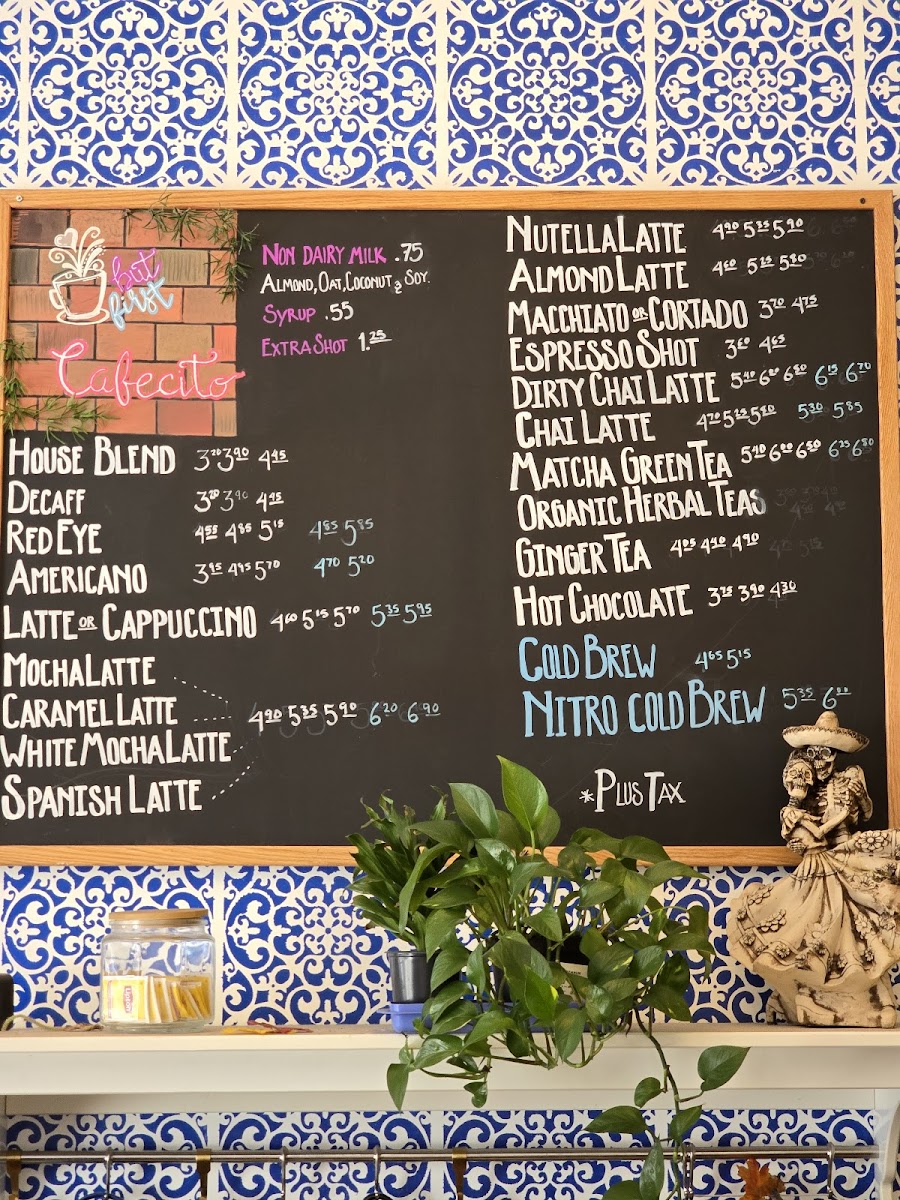 but
first
Cafecito
NON DAIRY MILK .75
ALMOND, OAT, COCONUT & SOY.
SYRUP .55
EXTRA SHOT 1.25
HOUSE BLEND 3.20 3.90 4.45
DECAFF 3.20 3.90 4.45
RED EYE 4.55 4.85 5.15 4.85 5.85
AMERICANO 3.95 4.95 5.70 4.70 5.20
LATTE OR CAPPUCCINO 4.60 5.15 5.70 5.35 5.95
MOCHA LATTE
CARAMEL LATTE 4.90 5.35 5.90 6.20 6.90
WHITE MOCHA LATTE
SPANISH LATTE
NUTELLA LATTE 4.90 5.35 5.90
ALMOND LATTE 4.60 5.15 5.80
MACCHIATO OR CORTADO 3.70 4.75
ESPRESSO SHOT 3.60 4.65
DIRTY CHAI LATTE 5.40 6.00 6.80 6.15 6.70
CHAI LATTE 4.70 5.25 5.80 5.30 5.85
MATCHA GREEN TEA 5.40 6.00 6.50 6.25 6.80
ORGANIC HERBAL TEAS
GINGER TEA 4.05 4.40 4.90
HOT CHOCOLATE 3.75 3.90 4.30
COLD BREW 4.65 5.15
NITRO COLD BREW 5.35 6.00
*PLUS TAX
Lipton